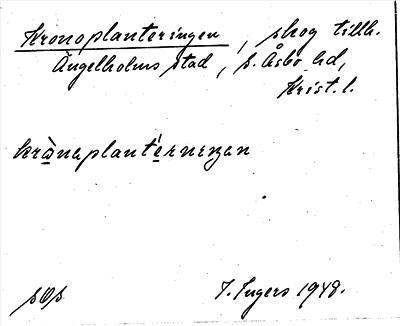 Kronoplanteringen, skog tillh.
Ängelholms stad, S. Åsbo hd,
Krist. l.
krònaplantérningan
sOs
I. Ingers 1948.